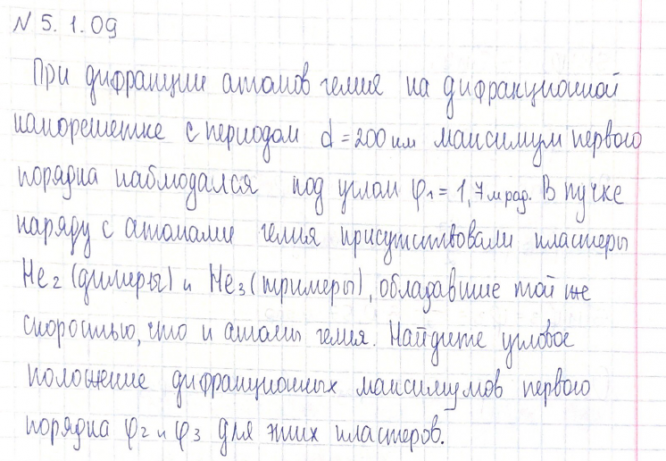 N 5.1.09
При дифракции атомов гелия на дифракционной
нанорешетке с периодом d = 200 нм максимум первого
порядка наблюдался под углом φ₁ = 1,7 мрад. В пучке
наряду с атомами гелия присутствовали кластеры
He₂ (димеры) и He₃ (тримеры), обладавшие той же
скоростью, что и атомы гелия. Найдите угловое
положение дифракционных максимумов первого
порядка φ₂ и φ₃ для этих кластеров.